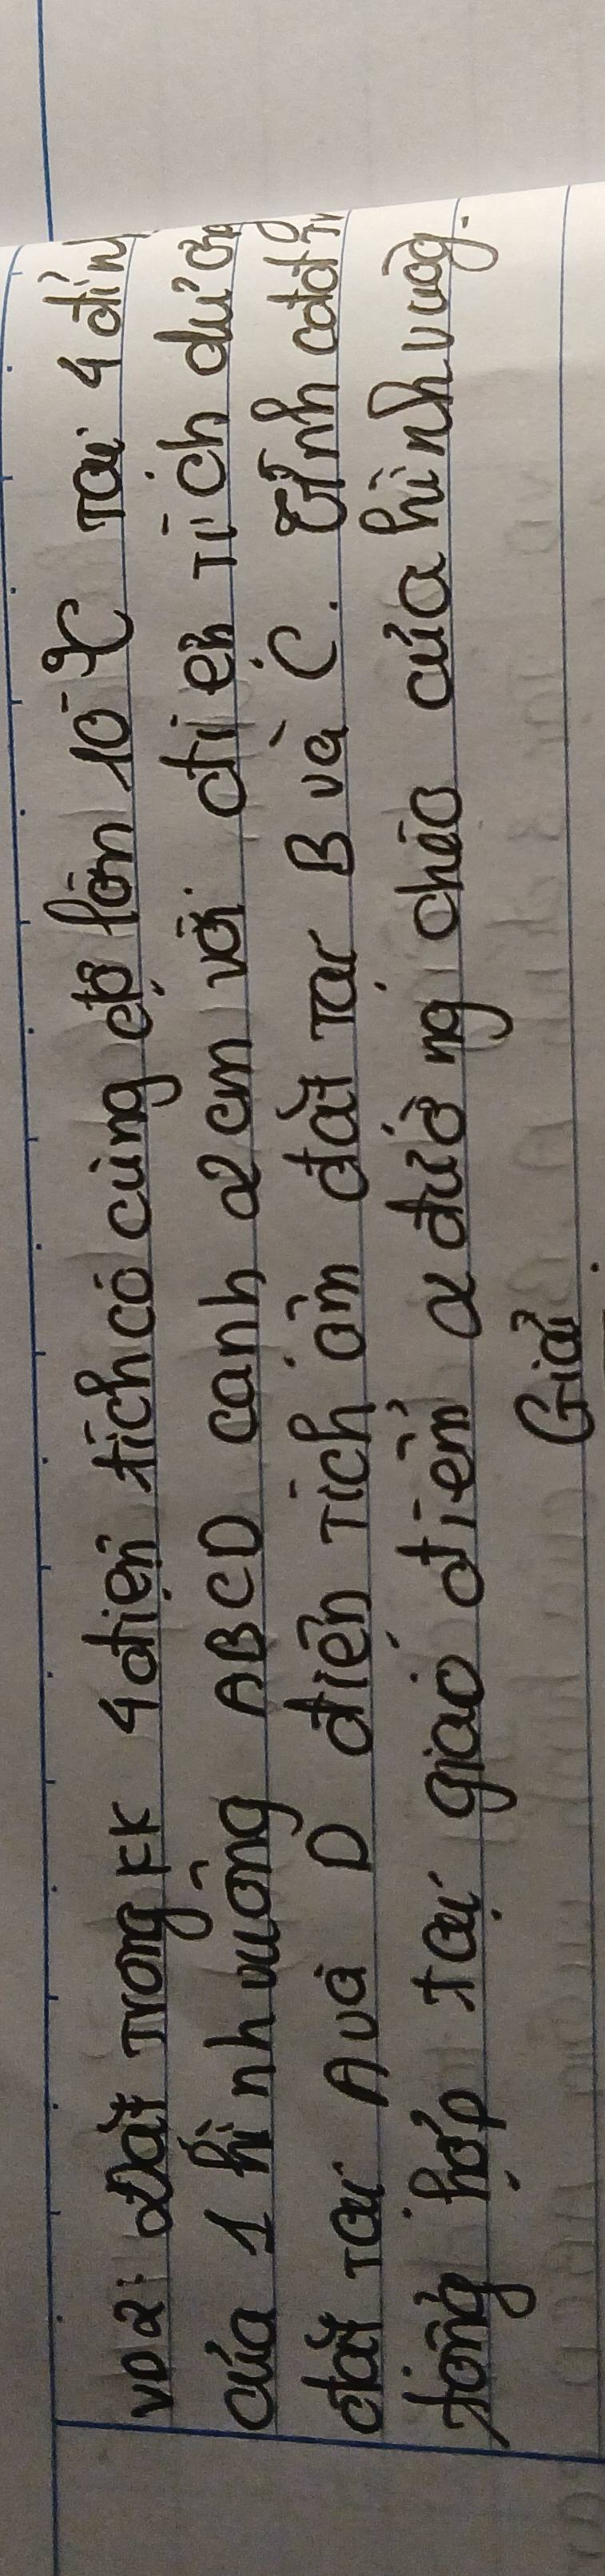 VD2: Đặt trong KK 4 điện tích có cùng độ lớn 10⁻⁹C tại 4 đỉnh
của 1 hình vuông ABCD cạnh 2cm với điện tích dương
đặt tại A và D điện tích âm đặt tại B và C. Tính cđđtr
tổng hợp tại giao điểm 2 đường chéo của hình vuôg.
Giải